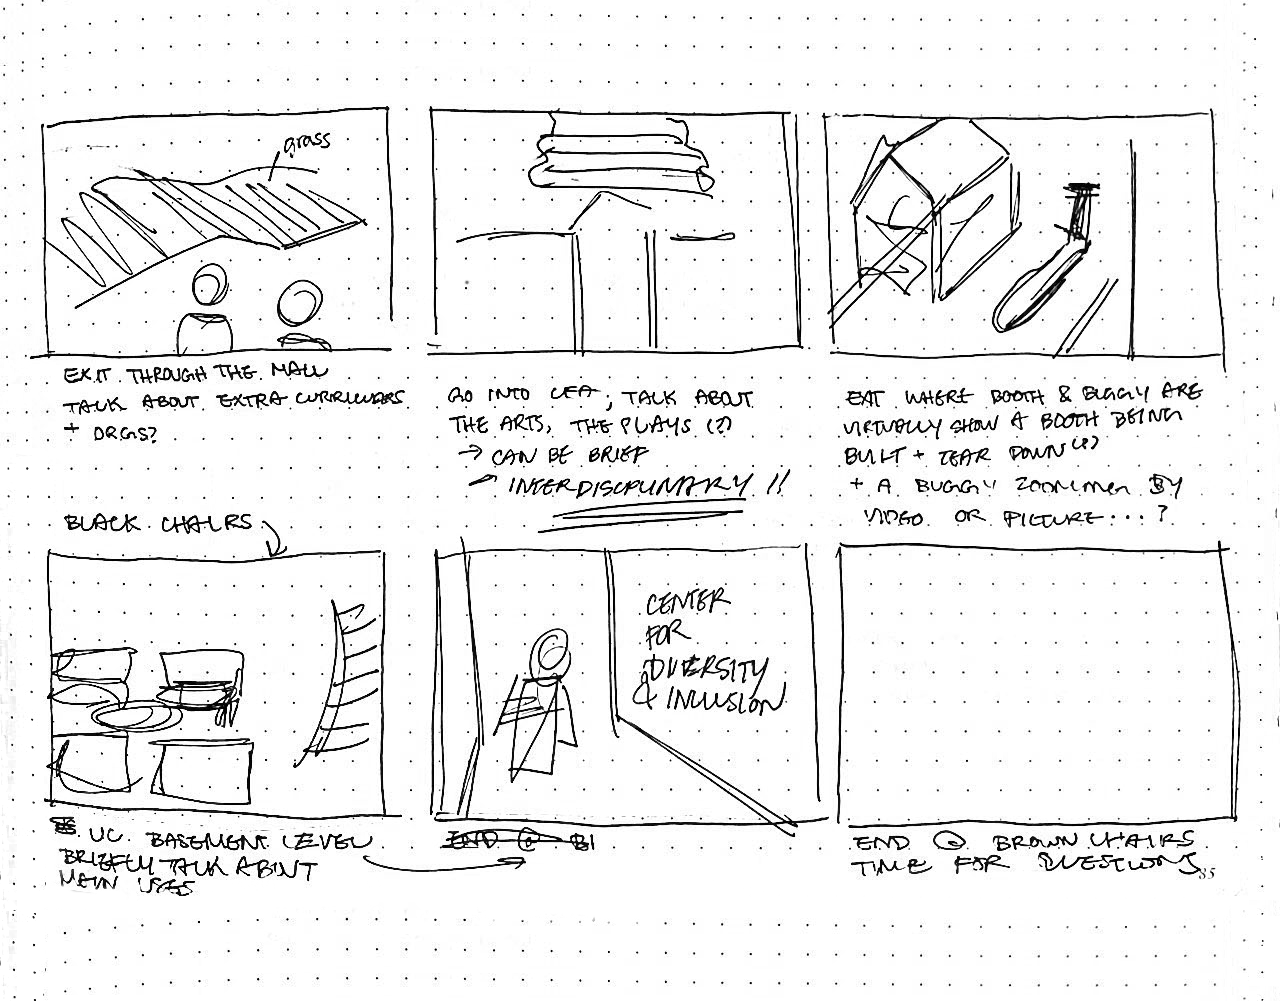 grass
EXIT THROUGH THE MALL
TALK ABOUT EXTRA CURRICULARS
+ ORGS?
GO INTO CFA, TALK ABOUT
THE ARTS, THE PLAYS (?)
→ CAN BE BRIEF
→ INTERDISCIPLINARY !!
EXIT WHERE BOOTH & BUGGY ARE
VIRTUALLY SHOW A BOOTH BEING
BUILT + TEAR DOWN (?)
+ A BUGGY ZOOMING BY
VIDEO OR PICTURE...?
BLACK CHAIRS
UC BASEMENT LEVEL
BRIEFLY TALK ABOUT
MAIN USES
CENTER
FOR
DIVERSITY
& INCLUSION
END @ B1
END @ BROWN CHAIRS
TIME FOR QUESTIONS
85